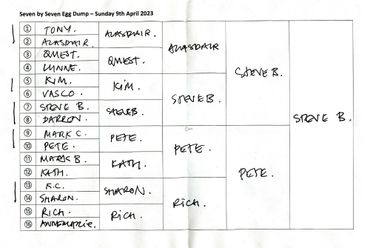 Seven by Seven Egg Dump – Sunday 9th April 2023
1 TONY.
2 ALASDAIR.
ALASDAIR.
3 QMEST.
4 LYNNE.
QMEST.
ALASDAIR
5 KIM.
6 VASCO.
KIM.
7 STEVE B.
8 DARREN.
STEVEB.
STEVEB.
STEVE B.
9 MARK C.
10 PETE.
PETE.
11 MARK B.
12 KATH.
KATH.
PETE.
13 K.C.
14 SHARON.
SHARON.
15 RICH.
16 ANNEMARIE.
RICH.
RICH.
PETE.
STEVE B.